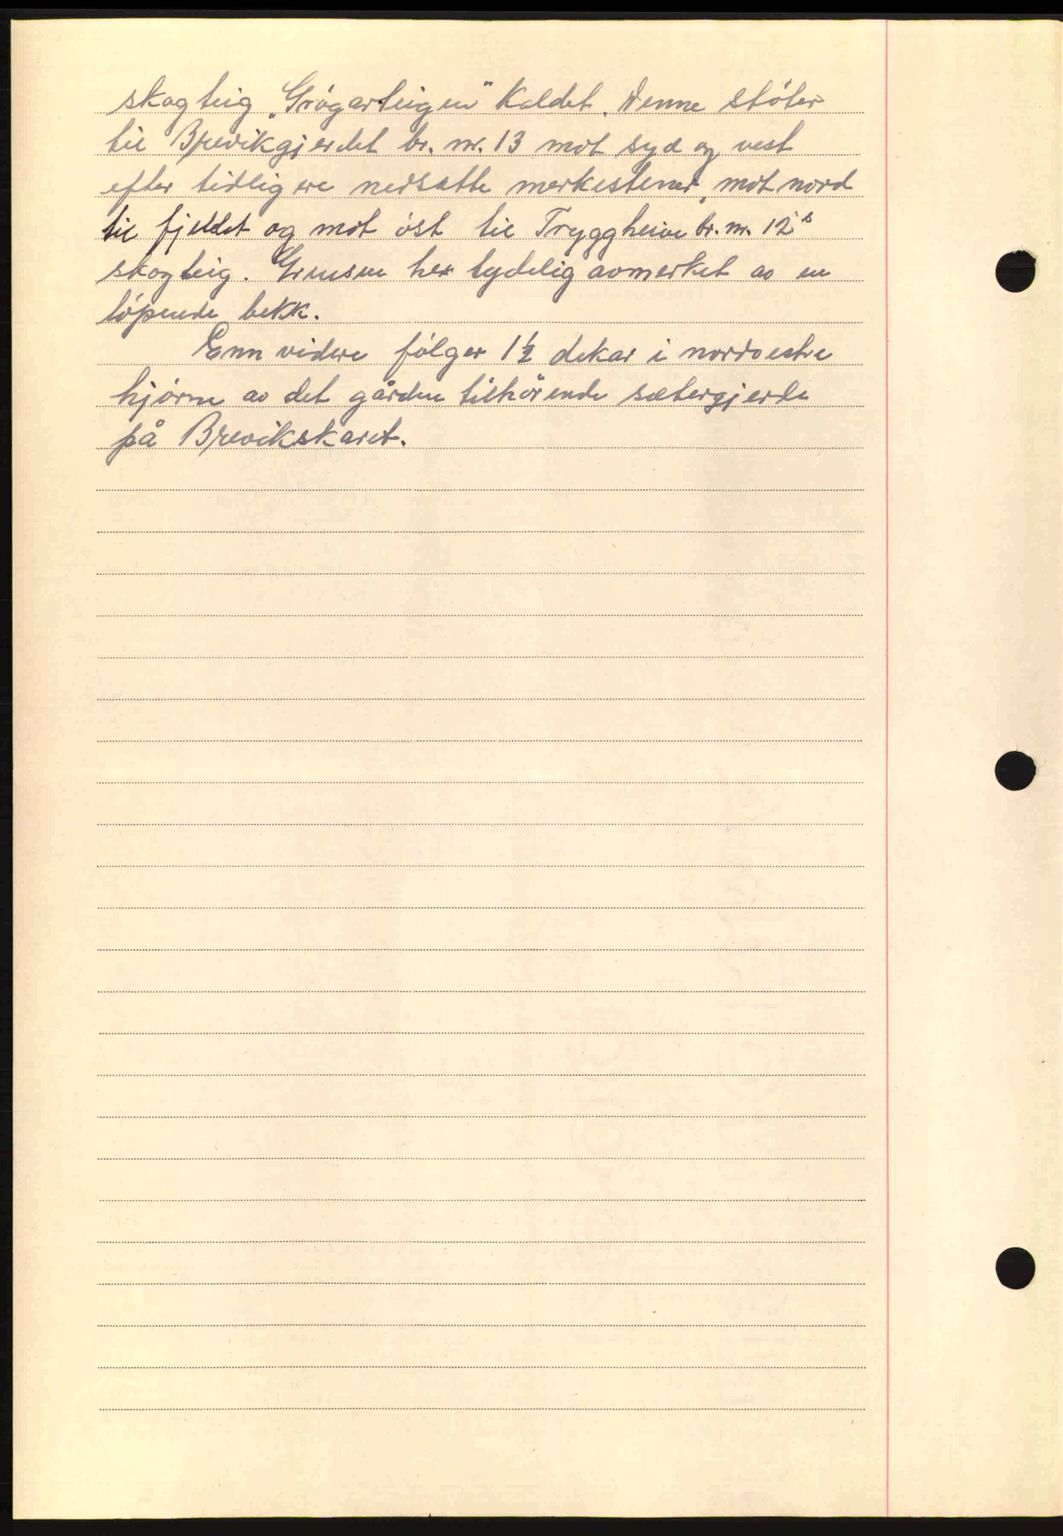 skogteig „Grógarteigen" kaldet. Denne stöter
til Brevikgjerdet br. nr. 13 mot syd og vest
efter tidligere nedsatte merkestener, mot nord
til fjeldet og mot öst til Tryggheim br. nr. 12's
skogteig. Grensen her tydelig avmerket av en
löpende bekk.
Enn videre fölger 1½ dekar i nordvestre
hjörne av det gården tilhörende sætergjerde
på Brevikskaret.